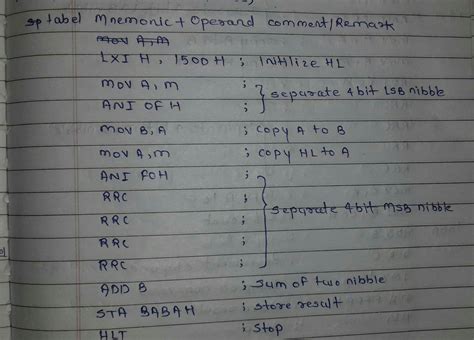 sp label Mnemonic + Operand comment/Remark
MOV A,M
LXI H, 1500H ; INHlize HL
MOV A,M ;
ANI OFH ; separate 4bit LSB nibble
MOV B,A ; copy A to B
MOV A,M ; copy HL to A
ANI FOH ;
RRC ;
RRC ; separate 4bit MSB nibble
RRC ;
RRC ;
ADD B ; sum of two nibble
STA BABAH ; store result
HLT ; stop